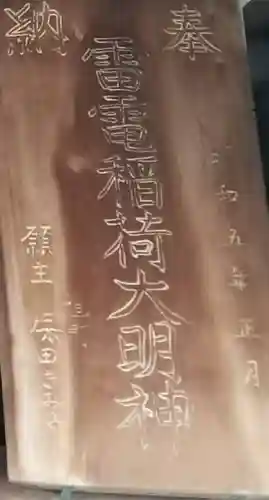 奉納
雷電稲荷大明神
和五年正月
願主